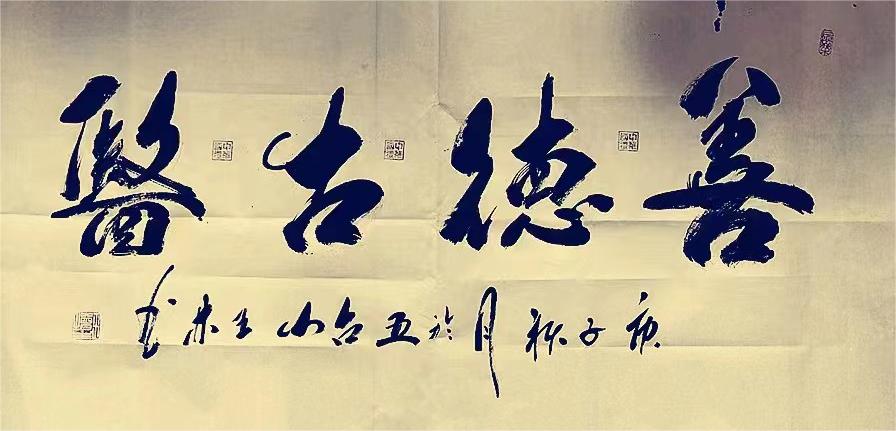 善德古醫
庚子秋月於五台山生未書